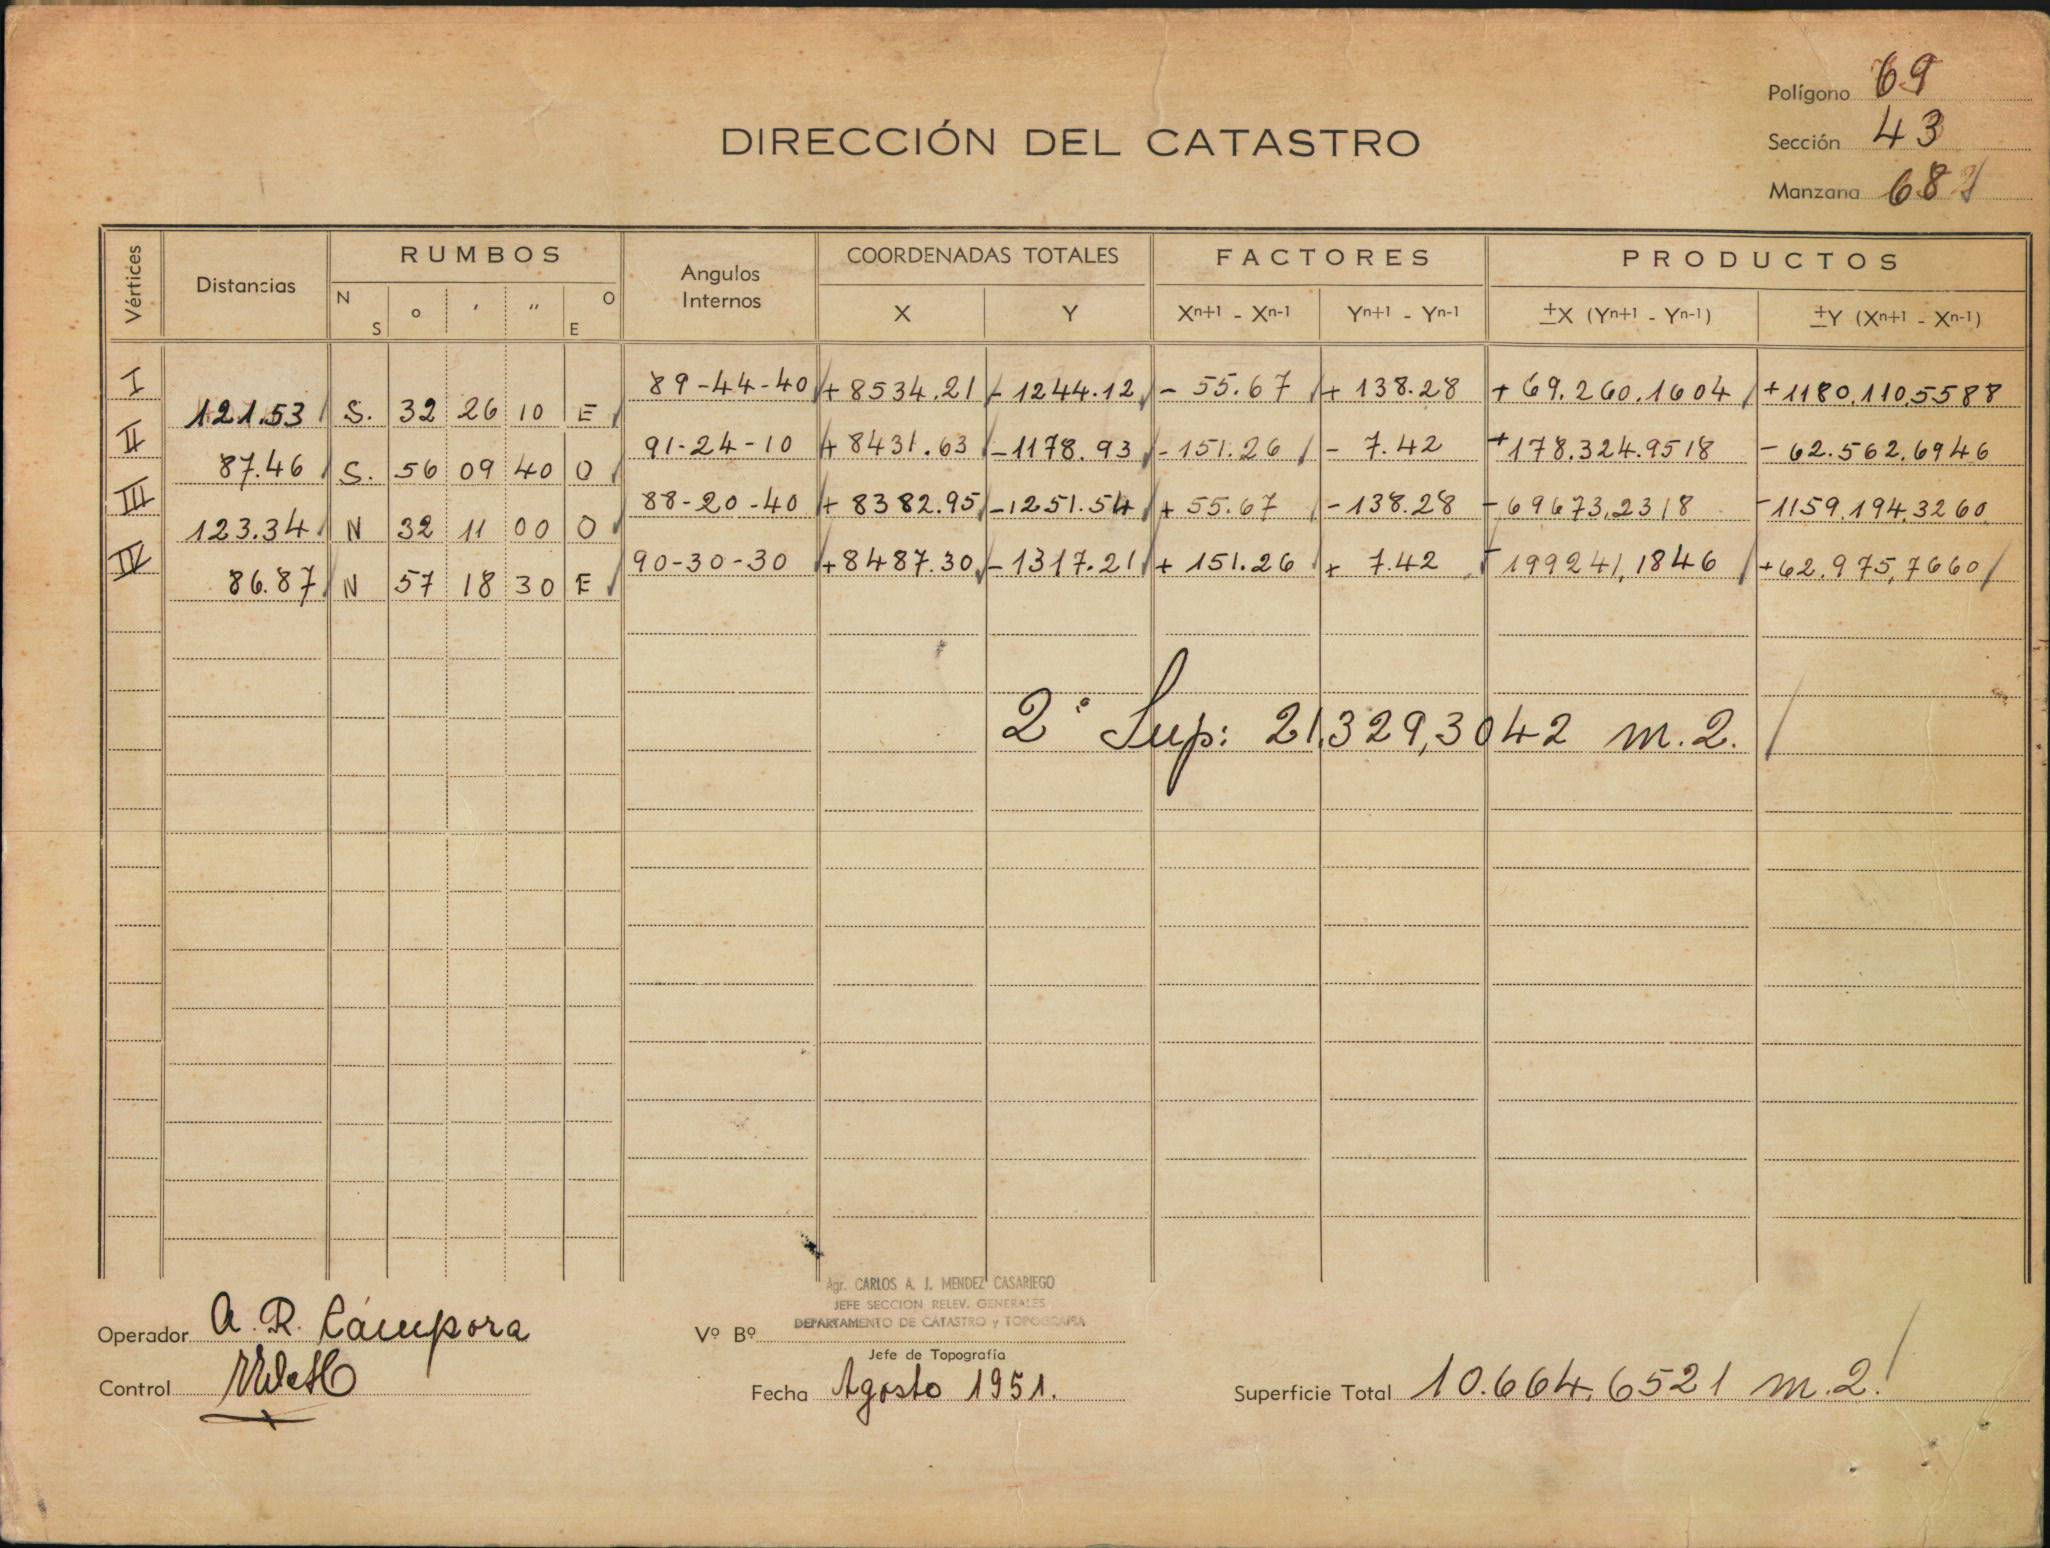 Polígono 69
DIRECCIÓN DEL CATASTRO
Sección 43
Manzana 68
Vértices Distancias RUMBOS Angulos Internos COORDENADAS TOTALES FACTORES PRODUCTOS
N S ° ' " O E X Y Xn+1 - Xn-1 Yn+1 - Yn-1 ±X (Yn+1 - Yn-1) ±Y (Xn+1 - Xn-1)
I 89-44-40 +8534.21 -1244.12 -55.67 +138.28 +69.260.1604 +1180.110,5588
121.53 S. 32 26 10 E
II 91-24-10 +8431.63 -1178.93 -151.26 -7.42 +178.324.9518 -62.562,6946
87.46 S. 56 09 40 O
III 88-20-40 +8382.95 -1251.54 +55.67 -138.28 -69673,2318 -1159.194,3260
123.34 N 32 11 00 O
IV 90-30-30 +8487.30 -1317.21 +151.26 +7.42 -199241,1846 +62.975,7660
86.87 N 57 18 30 E
2° Sup: 21.329,3042 m.2.
Agr. CARLOS A. J. MENDEZ CASARIEGO
JEFE SECCION RELEV. GENERALES
DEPARTAMENTO DE CATASTRO y TOPOGRAFIA
Operador A. R. Cámpora Vº Bº
Jefe de Topografía
Control Fecha Agosto 1951. Superficie Total 10.664,6521 m.2.